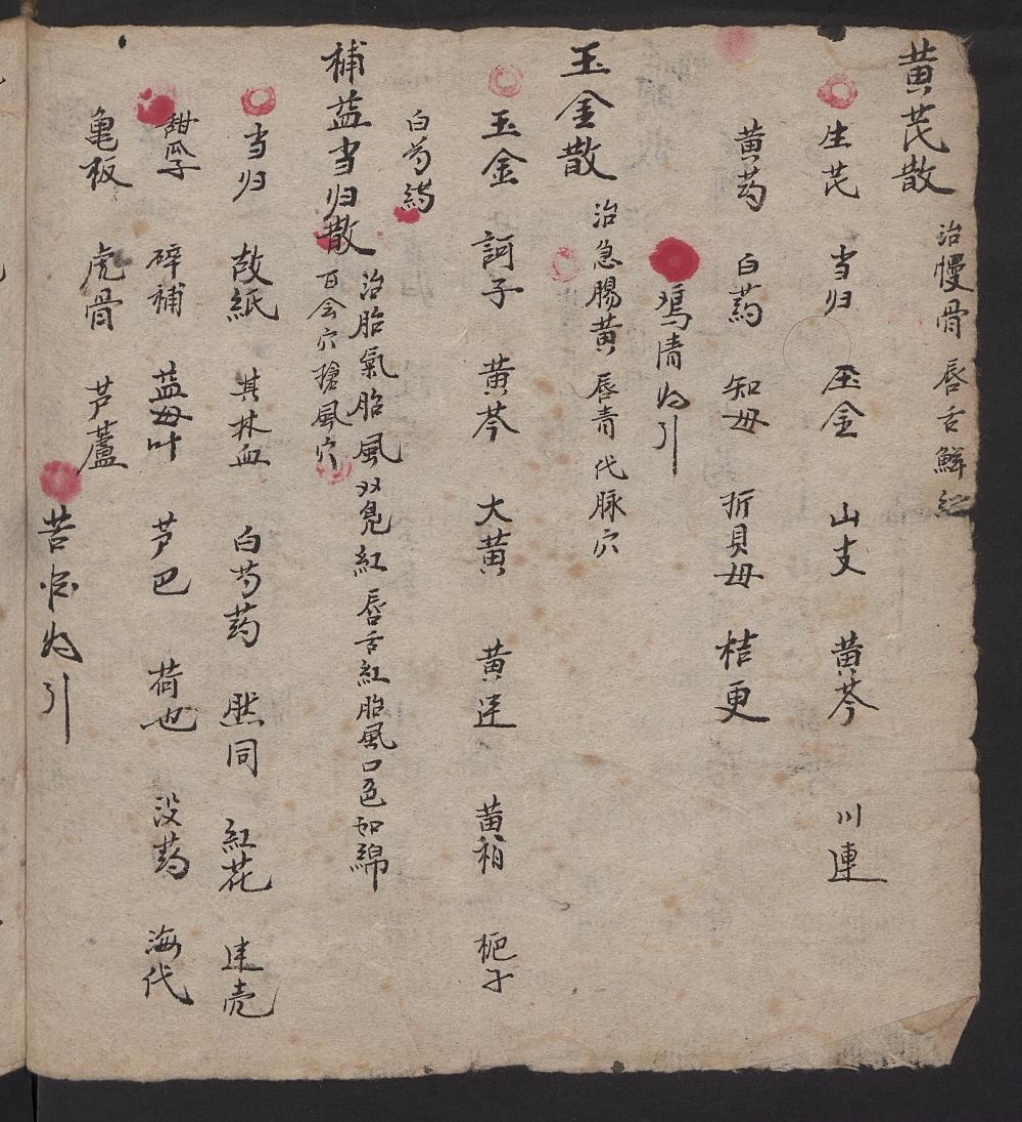 黄芪散
治慢骨 唇舌鮮紅
生芪 当归 玉金 山支 黄芩 川連
黄芍 白药 知母 折貝母 桔更
鸡清为引
玉金散
治急腸黄 唇青 代脉穴
玉金 訶子 黄芩 大黄 黄连 黄柏 栀子
白芍药
補益当归散
治胎氣胎風双凫紅 唇舌紅胎風口色如綿
百会穴搶風穴
当归 故紙 其林血 白芍药 然同 紅花 连壳
甜瓜子 碎補 益母叶 芦巴 荷也 没药 海代
亀板 虎骨 芦薈
苦酒为引